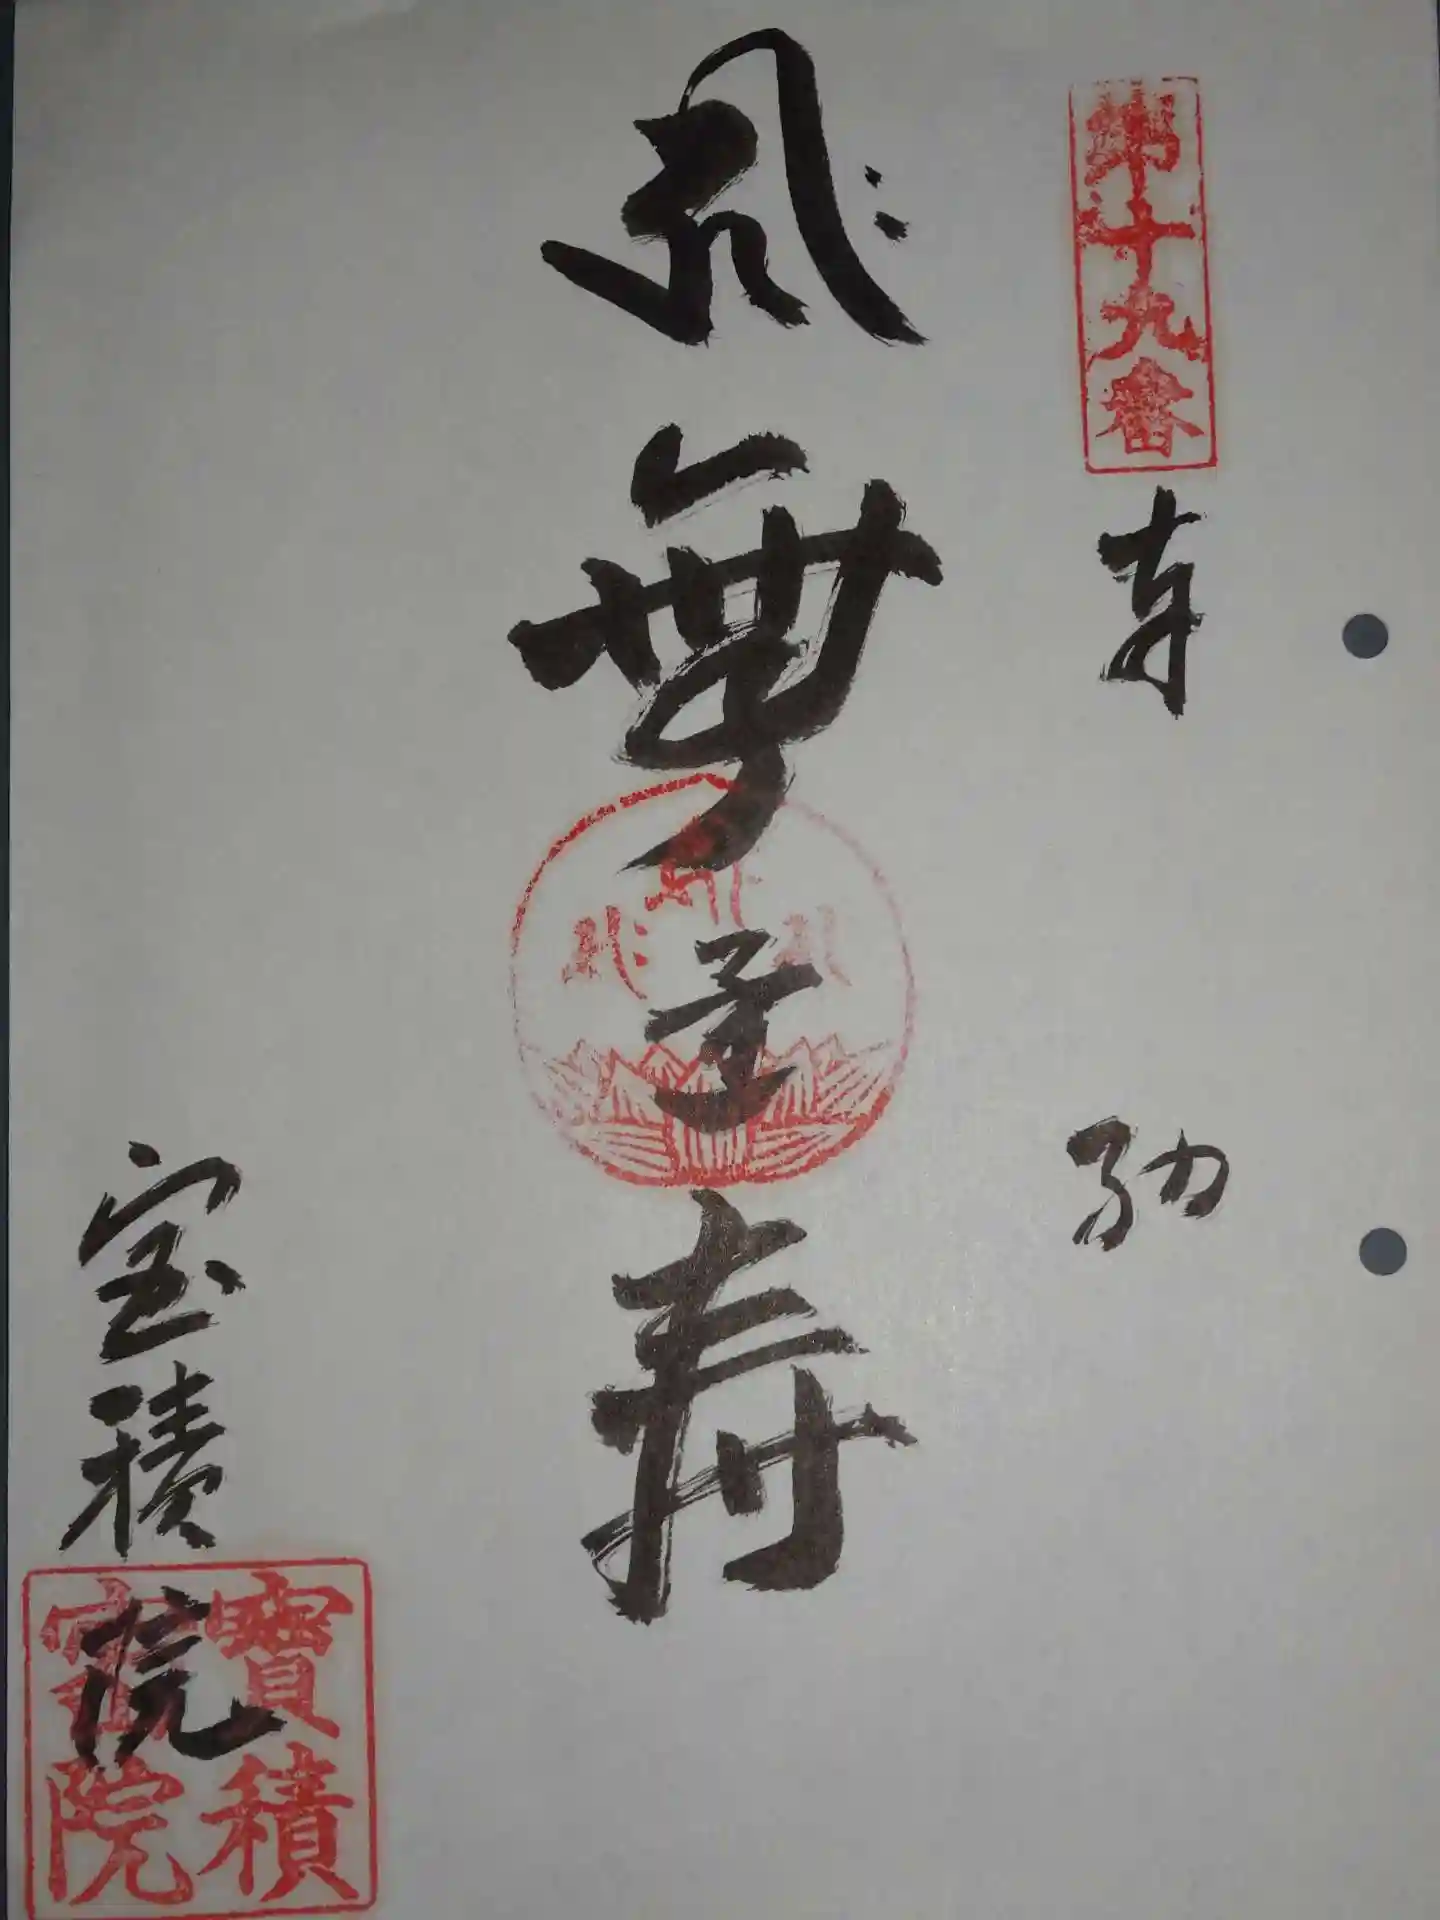 第十九番
奉 納
𑖮𑖿𑖨𑖱𑖾 無量寿
宝積院
寶積
院